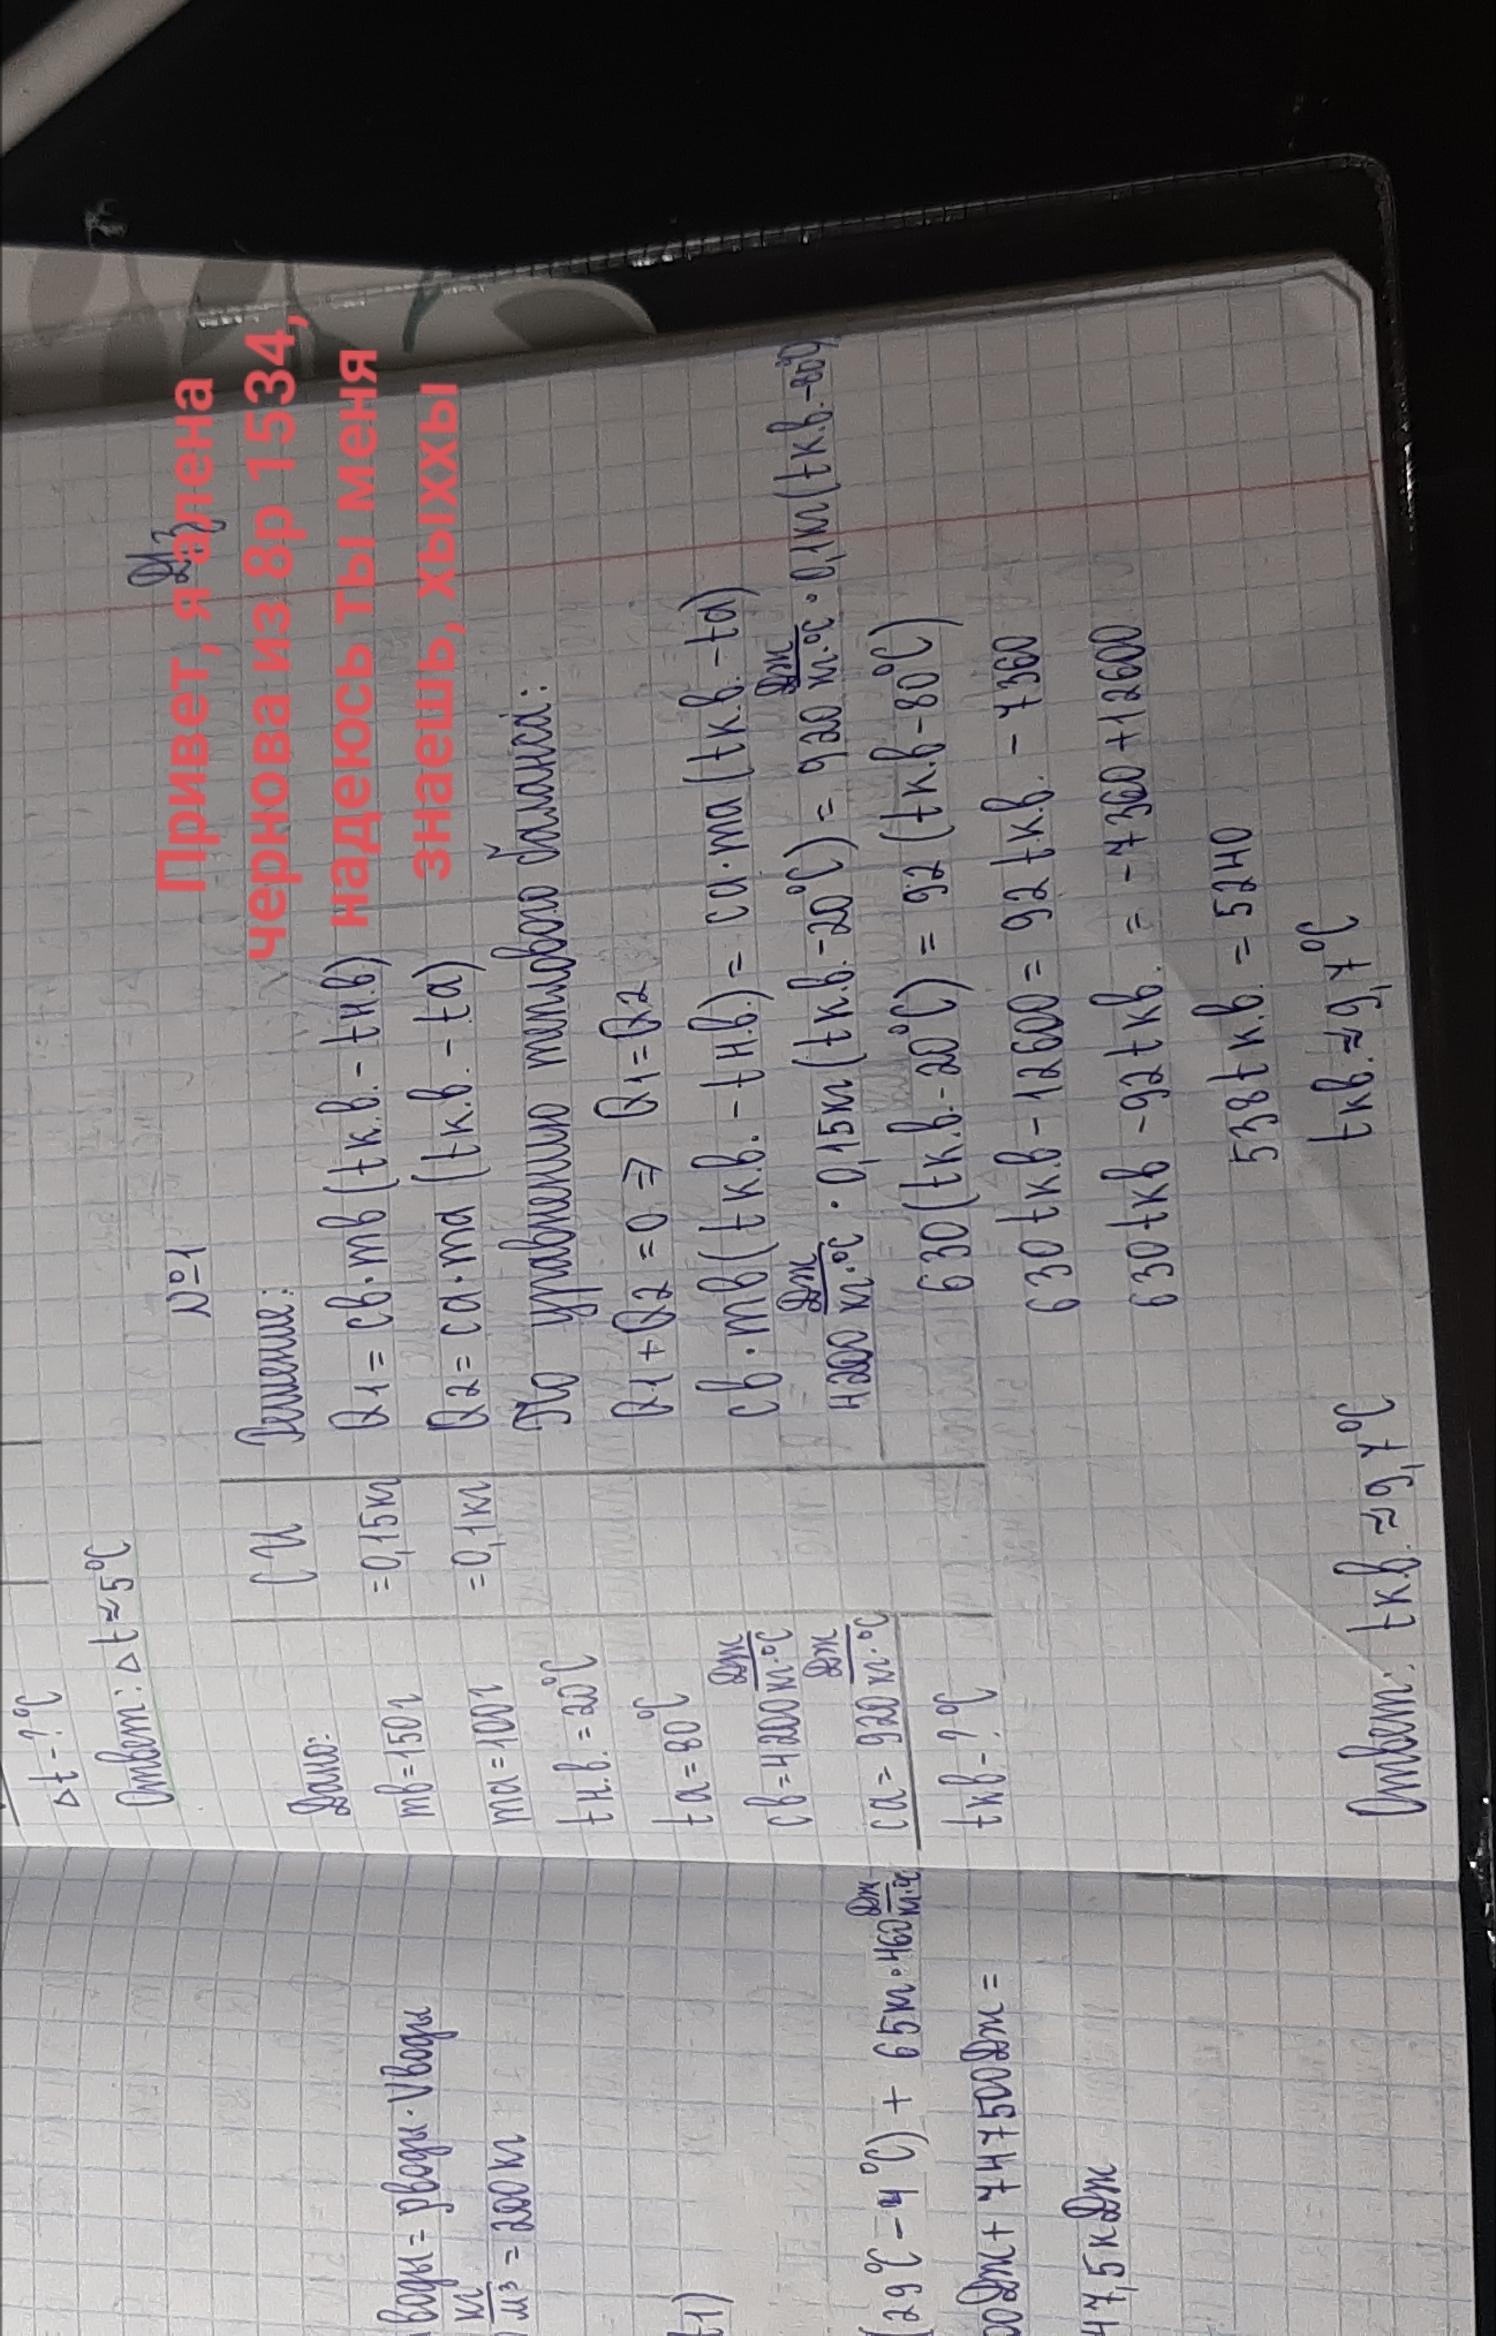 Привет, я алена
чернова из 8р 1534,
надеюсь ты меня
знаешь, хыххы
Δt-?°C
Ответ: Δt≈5°C
Дз
№1
Дано:
mв=150г
mа=100г
tн.в.=20°C
tа=80°C
cв=4200 Дж/кг·°C
cа= 920 Дж/кг·°C
tк.в.-?°C
СИ
=0,15кг
=0,1кг
Решение:
Q1=cв·mв(tк.в.-tн.в)
Q2=cа·mа(tк.в.-tа)
По уравнению теплового баланса:
Q1+Q2=0 => Q1=Q2
cв·mв(tк.в.-tн.в.)=cа·mа(tк.в.-tа)
4200 Дж/кг·°C·0,15кг(tк.в.-20°C)=920 Дж/кг·°C·0,1кг(tк.в.-80°C)
630(tк.в.-20°C)=92(tк.в-80°C)
630tк.в-12600=92tк.в.-7360
630tк.в-92tк.в.=-7360+12600
538tк.в.=5240
tк.в.≈9,7°C
Ответ: tк.в.≈9,7°C
воды=ρводы·Vводы
кг/м³=200кг
t1)
(29°C-4°C)+65кг·460 Дж/кг·°C
00Дж+747500Дж=
47,5кДж